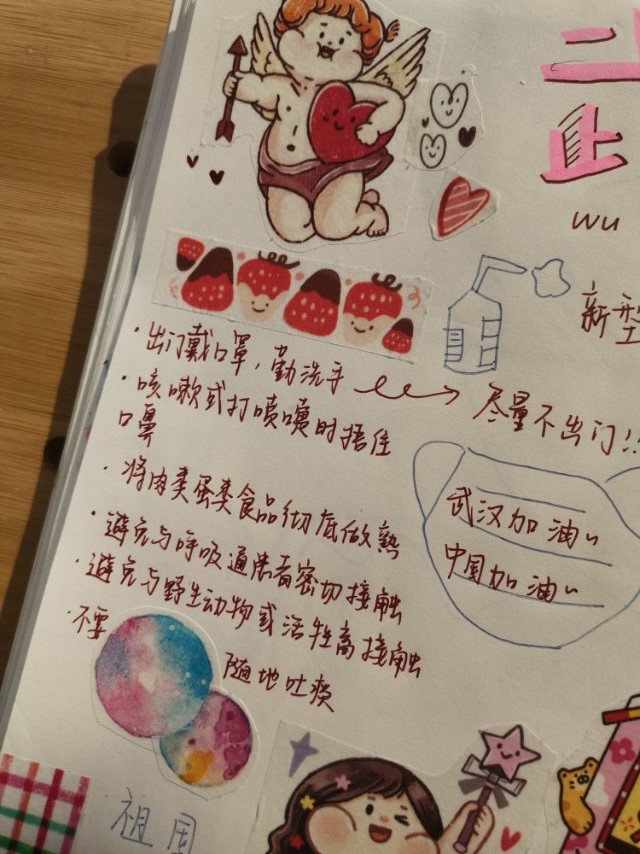 止
wu
新型
·出门戴口罩，勤洗手
尽量不出门!!
·咳嗽或打喷嚏时捂住
口鼻
·将肉类蛋类食品彻底做熟
武汉加油~
中国加油~
·避免与呼吸道患者密切接触
·避免与野生动物或活牲禽接触
·不要
随地吐痰
祖国